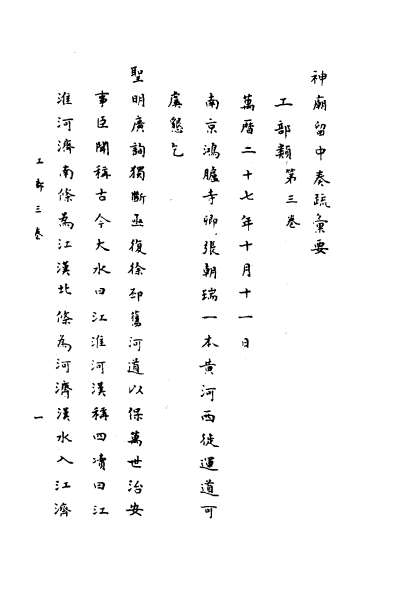 神廟留中奏疏彙要
工部類第三卷
萬曆二十七年十月十一日
南京鴻臚寺卿張朝瑞一本黃河西徙運道可
虞懇乞
聖明廣詢獨斷亟復徐邳舊河道以保萬世治安
事臣聞稱古今大水曰江淮河漢稱四瀆曰江
淮河濟南條為江漢北條為河濟漢水入江濟
工部三卷
一